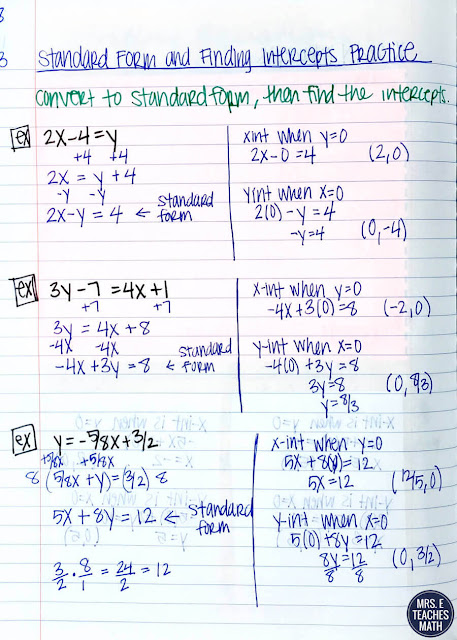 8
3
Standard Form and Finding Intercepts Practice
Convert to standard form, then find the intercepts.
ex
2x-4=y
+4 +4
2x = y+4
-y -y
2x-y = 4 ← standard form
x int when y=0
2x-0=4 (2,0)
y int when x=0
2(0)-y=4
-y=4 (0,-4)
ex
3y-7 = 4x+1
+7 +7
3y = 4x+8
-4x -4x
-4x+3y = 8 ← standard form
x-int when y=0
-4x+3(0)=8 (-2,0)
y-int when x=0
-4(0)+3y=8
3y=8 (0,8/3)
y=8/3
ex
y=-5/8x+3/2
+5/8x +5/8x
8(5/8x+y)=(3/2)8
5x+8y=12 ← standard form
3/2 · 8/1 = 24/2 = 12
x-int when y=0
5x+8(0)=12
5x=12 (12/5,0)
y-int when x=0
5(0)+8y=12
8y/8=12/8 (0,3/2)
MRS. E
TEACHES
MATH